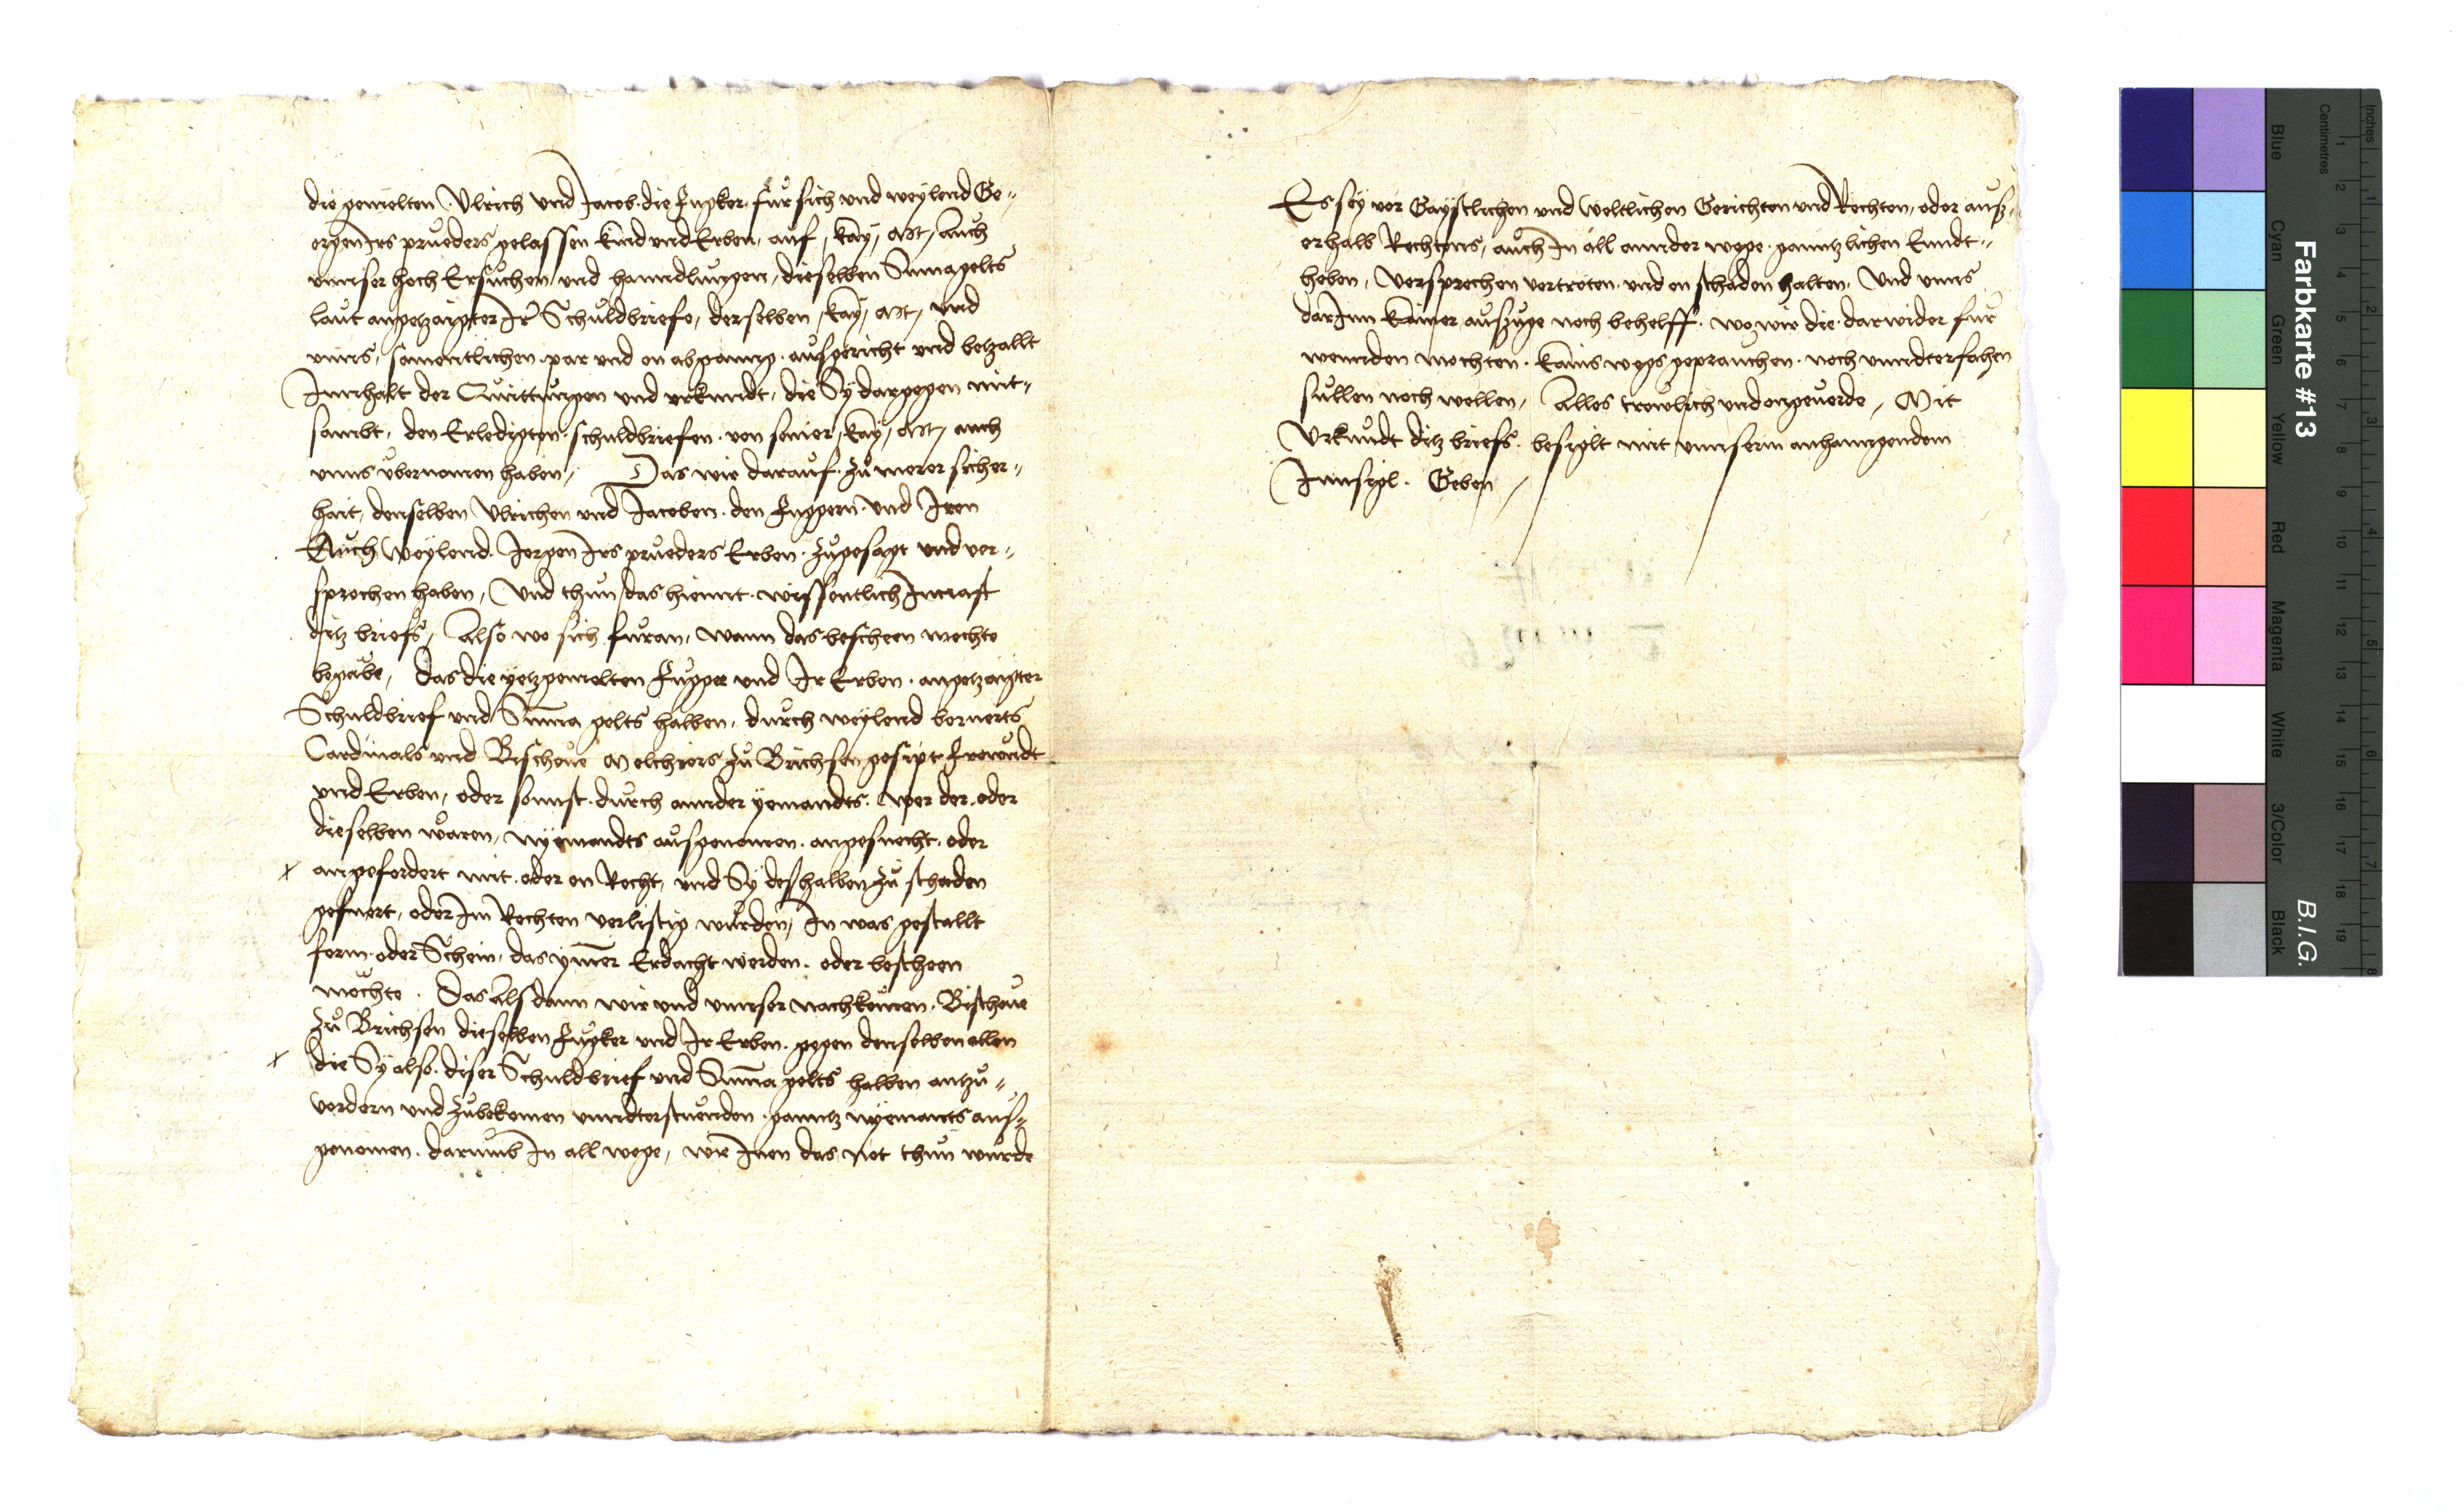 die gemelten Ulrich und Jacob die Fugker fůr sich und weylend Ge„
orgen Irs prueders gelassen kind und Erben, auf, kay, Mt, auch
unnser hoch Ersuchen und hanndlungen, dieselben Sumagelts
laut angetzaigter Ir Schuldbriefe, derselben, kay, Mt, und
unns, samentlichen par und on abganng ausgericht und betzallt
Innhalt der Quittungen und urkundt, die Sy dargegen mit„
sambt, den Erledigten schuldbriefen von seiner, kay, Mt, auch
unns ubernomen haben, Das wir darauf zů merer sicher„
hait, denselben Ulrichen und Jacoben den Fuggern und Iren
Auch weylend Jorgen Irs prueders Erben zůgesagt und ver„
sprochen haben, Und thun das hiemit wissentlich Incraft
ditz briefs, Also wo sich fůran, wann das bescheen mochte
begäbe, das die yetzgemelten Fugger und Ir Erben angetzaigter
Schuldbrief und Suma gelts halben, durch weylend berurts
Cardinals und Bischoue Melchiors zů Brichsen gesipt Frewndt
und Erben, oder sonnst durch annder yemandts wer der oder
dieselben wåren, nyemandts ausgenomen angesuecht oder
angefordert mit oder on Recht, und Sy deshalben zu schaden
gefuert, oder Im Rechten verlustig wurden, In was gestallt
form oder Schein, das ymer Erdacht werden oder bescheen
möchte. Das Alsdann wir und unnser nachkomen Bischoue
zů Brichsen dieselben Fugker und Ir Erben gegen denselben allen
die Sy also diser Schuldbrief und Suma gelts halben antzu„
vordern und zubekomen unndterstuenden ganntz nyemants aus„
genomen darumb In all wege, wie Inen das not thun wurde
Es sey vor Gaystlichen und Weltlichen Gerichten und Rechten, oder aus„
erhalb Rechtens, auch In all annder wege ganntzlichen Enndt„
heben, Versprechen vertreten und on schaden halten, Und unns
darInn kainer auszuge noch behelff wo wir die darwider fur
wennden mochten kains wegs geprauchen noch unndterfahen
sullen noch wellen, Alles trewlich und ongeuerde, Mit
Urkundt ditz briefs besiglt mit unnserm anhanngendem
Innsigl. Geben
Farbkarte #13
B.I.G.
Inches
Centimetres
Blue
Cyan
Green
Yellow
Red
Magenta
White
3/Color
Black
1 2 3 4 5 6 7 8 9 10 11 12 13 14 15 16 17 18 19
1 2 3 4 5 6 7 8